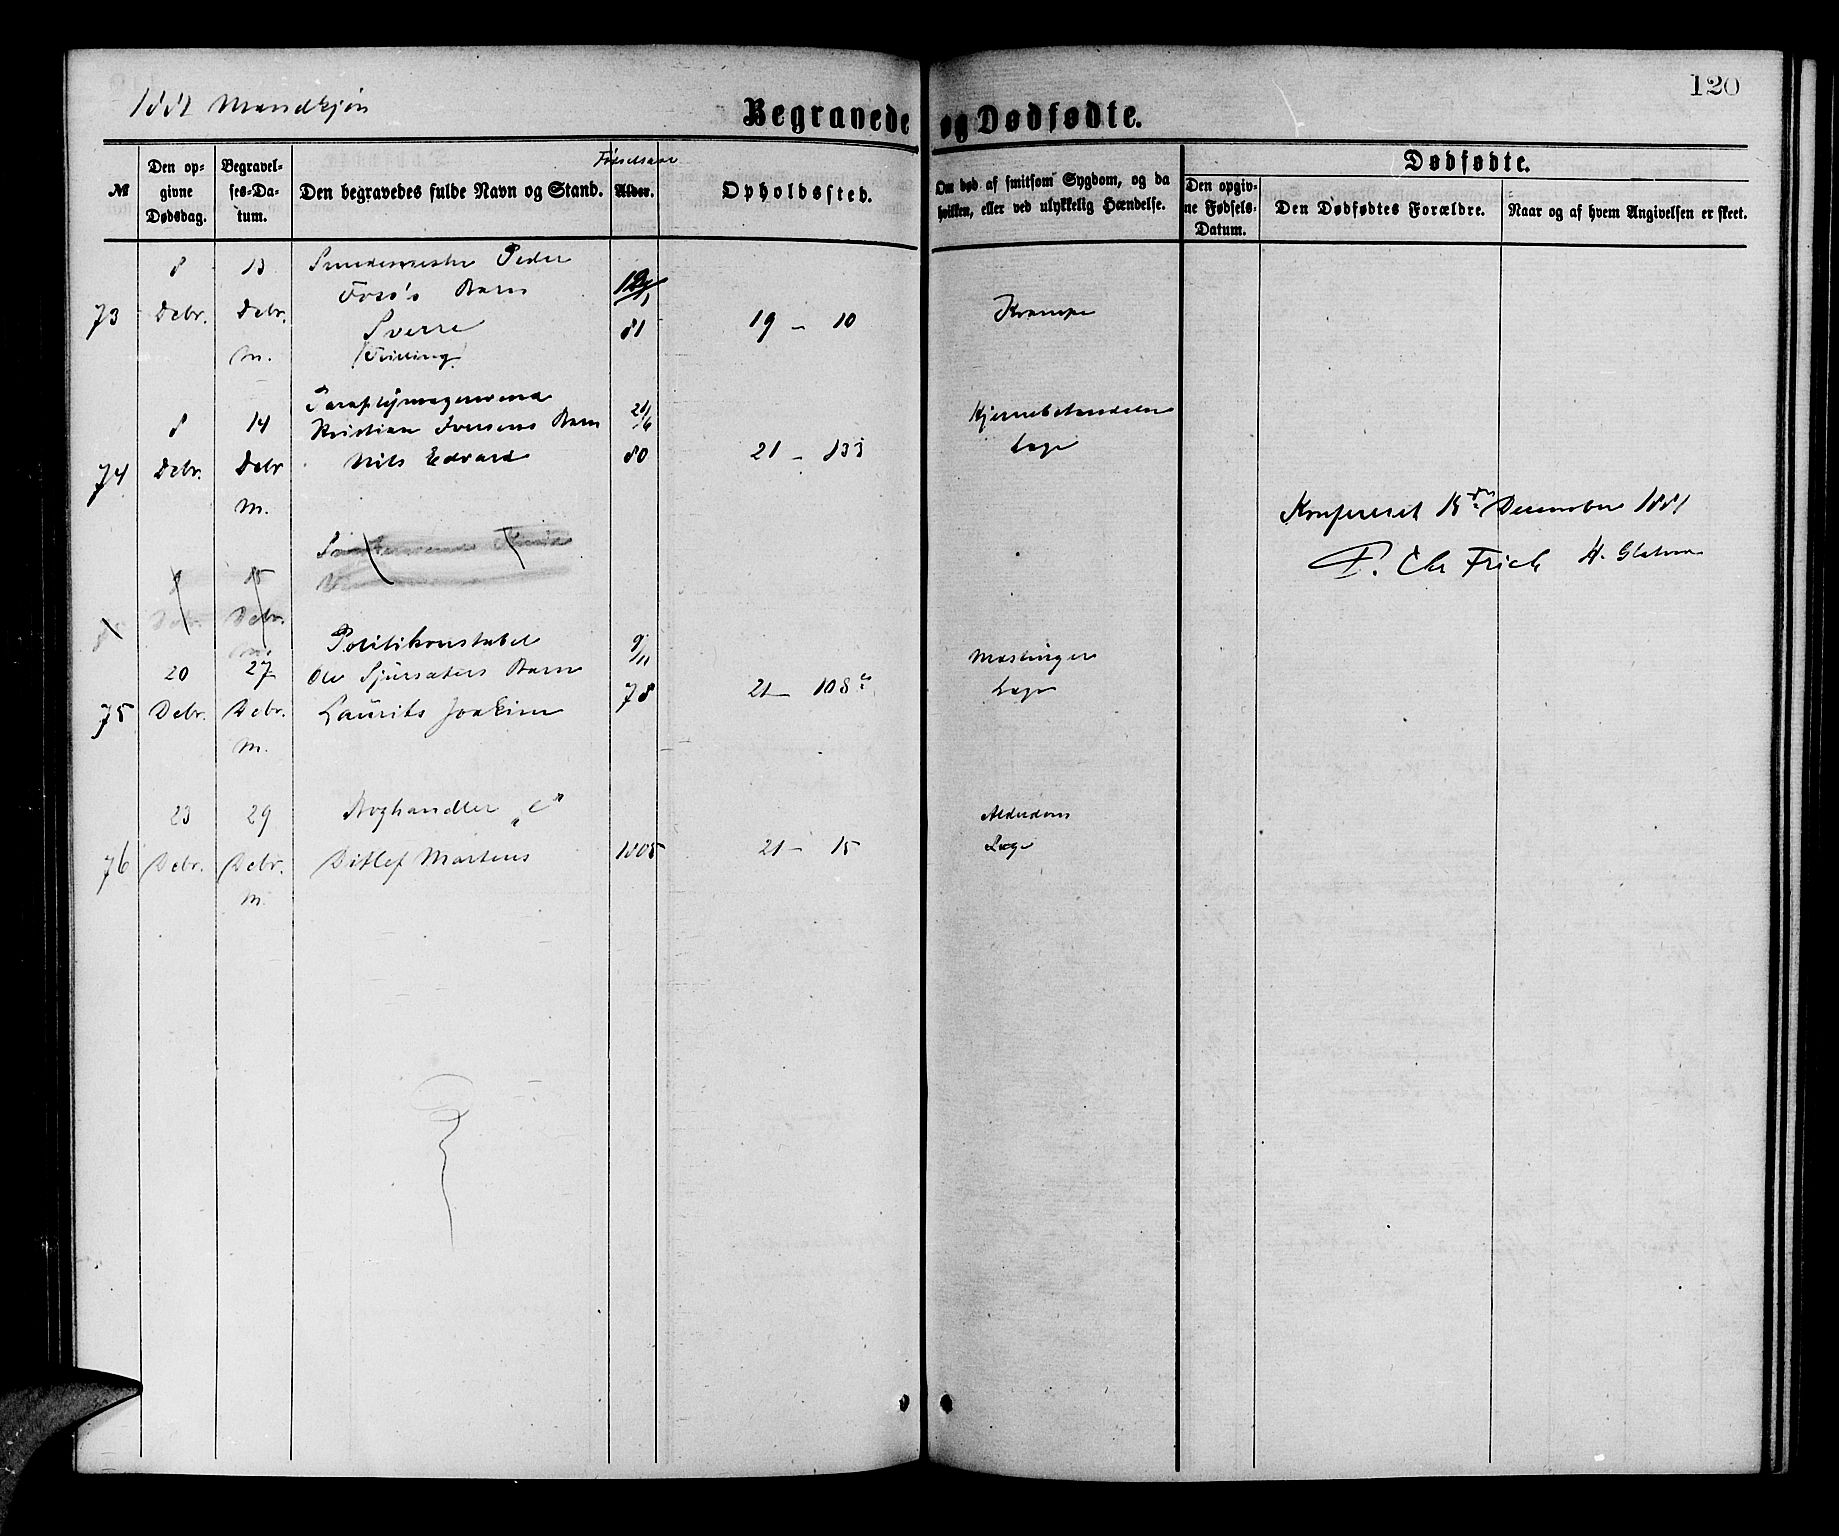 1881 Mandkjøn
120
Begravede og Dødfødte.
№
Den opgivne Dødsdag.
Begravelses-Datum.
Den begravedes fulde Navn og Stand.
Fødselsaar
Alder.
Opholdssted.
Om død af smitsom Sygdom, og da hvilken, eller ved ulykkelig Hændelse.
Dødfødte.
Den opgivne Fødsels-Datum.
Den Dødfødtes Forældre.
Naar og af hvem Angivelsen er skeet.
8 13 Smedemester Peder
Foss's Barn
73 Debr. Debr. Sverre 81 19 – 10 Krampe
m. (Tvilling)
Paraplymagersvend
8 14 Kristian Iversens Barn 21/6 Hjernebetændelse
74 Debr. Debr Nils Edvard 80 21 – 133 Læge
M.
Konfereret 15de December 1881
F. Chr Frich H.
15
Debr.
Politikonstabel 9/11
20 27 Ole Sjursæters Barn Mæslinger
75 Debr. Debr. Laurits Joakim 78 21 – 108 Læge
M.
23 29 Boghandler „e" Alderdom
76 Debr. Debr. Ditlef Martens 1805 21 – 15 Læge
M.